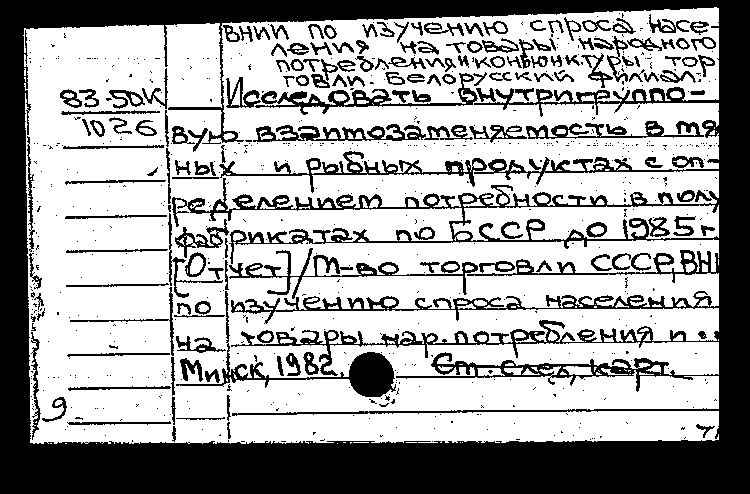 ВНИИ по изучению спроса насе-
ления на товары народного
потребления и конъюнктуры тор
говли. Белорусский филиал.
83-50К
Исследовать внутригруппо-
1026
вую взаимозаменяемость в мя
ных и рыбных продуктах с оп-
ределением потребности в полу
фабрикатах по БССР до 1985 г
[Отчет] / М-во торговли СССР, ВНИ
по изучению спроса населения
на товары нар. потребления и ..
Минск, 1982. См. след. карт.
9